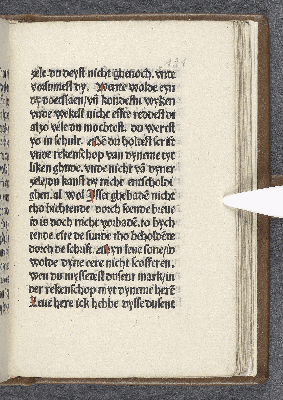 131
zele du deyst nicht ghenoch. vnde
vorsumest dy. Wente wolde eyn
dy doetslaen/vñ kondestu wyken
vnde wekest nicht effte reddest di
alzo vele du mochtest. du werest
yo in schult. Mē du holdest scrift
vnde rekenschop van dyneme tyt
liken ghude. vnde nicht vā dyner
zele/du kanst dy nicht entschuldi
ghen. al wol Isset ghebadē nicht
tho bichtende dorch sende breue
id is doch nicht vorbadē. to bych
tende este de sunde tho beholdēde
dorch de schrift. Myn leue sone/ik
wolde dyne eere nicht scofferen.
wen du myssedest dusent mark/in
der rekenschop myt dyneme herē
Leue here ick hebbe dysse dusent